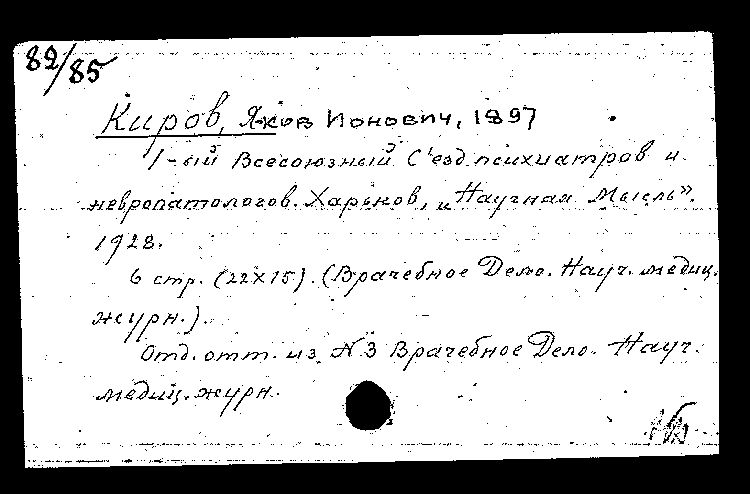 82/85
Киров, Яков Ионович, 1897
1-ый Всесоюзный С'езд психиатров и
невропатологов. Харьков, „Научная Мысль".
1928.
6 стр. (22x15). (Врачебное Дело. Науч. медиц.
журн.).
Отд. отт. из N3 Врачебное Дело. Науч.
медиц. журн.